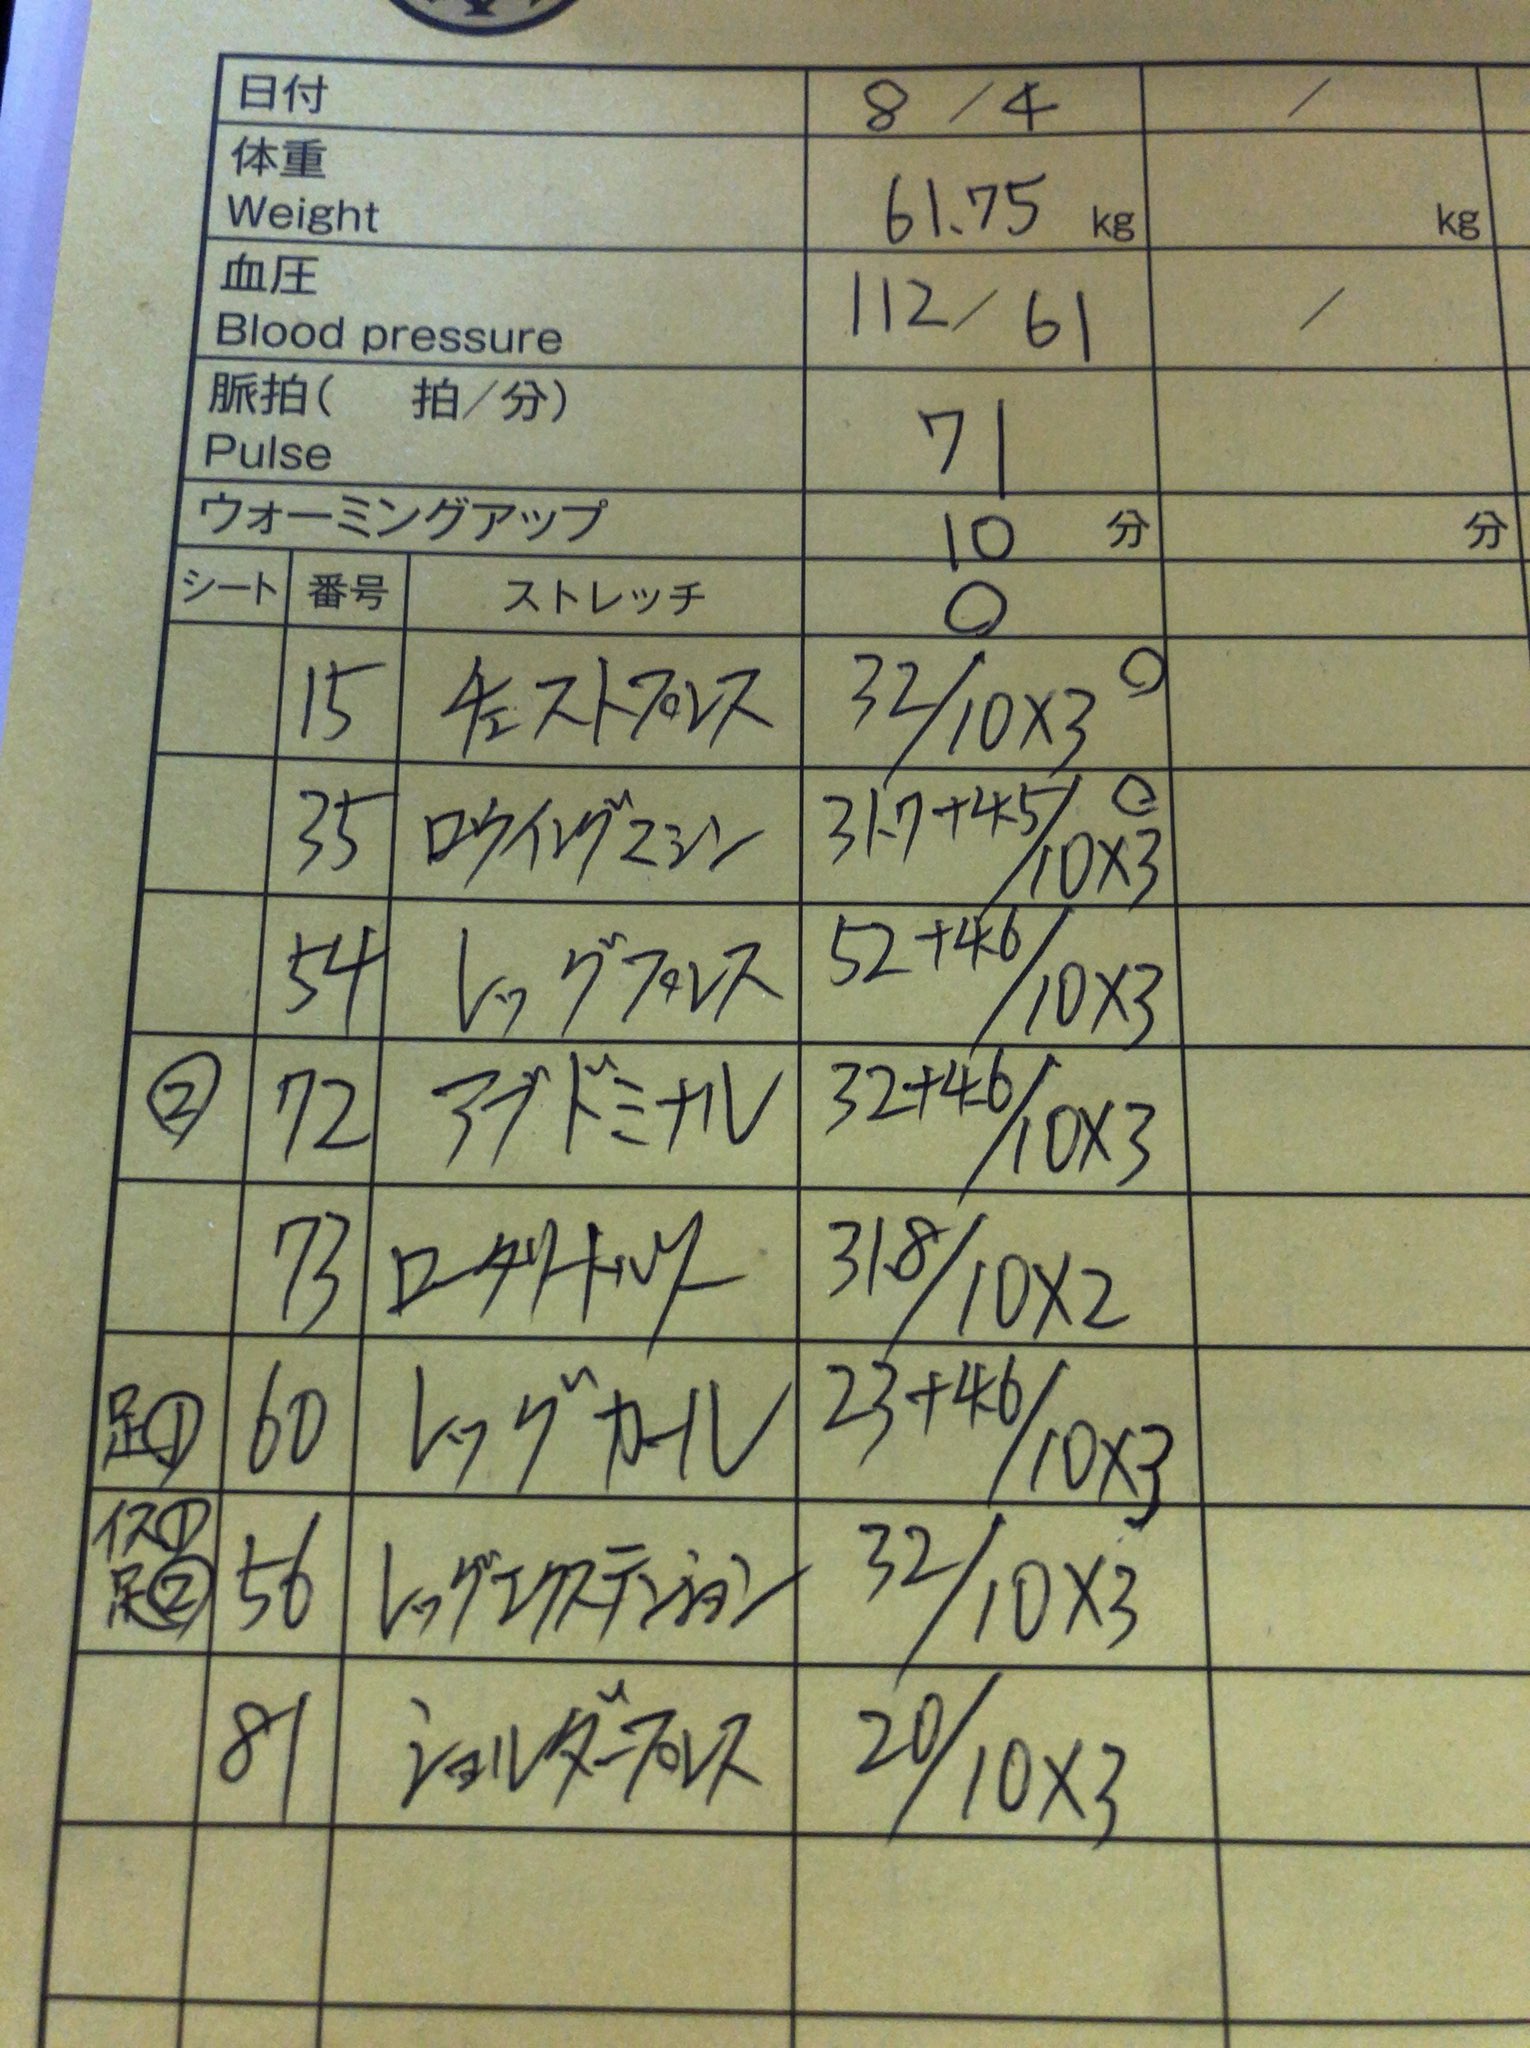 日付 8/4 /
体重
Weight 61.75 kg kg
血圧
Blood pressure 112/61 /
脈拍( 拍/分)
Pulse 71
ウォーミングアップ 10 分 分
シート 番号 ストレッチ ○
15 チェストプレス 32/10×3 ○
35 ロウイングマシン 31.7+4.5/10×3 ○
54 レッグプレス 52+4.6/10×3
② 72 アブドミナル 32+4.6/10×3
73 ロータリートルソー 31.8/10×2
足① 60 レッグカール 23+4.6/10×3
イス①
足② 56 レッグエクステンション 32/10×3
81 ショルダープレス 20/10×3